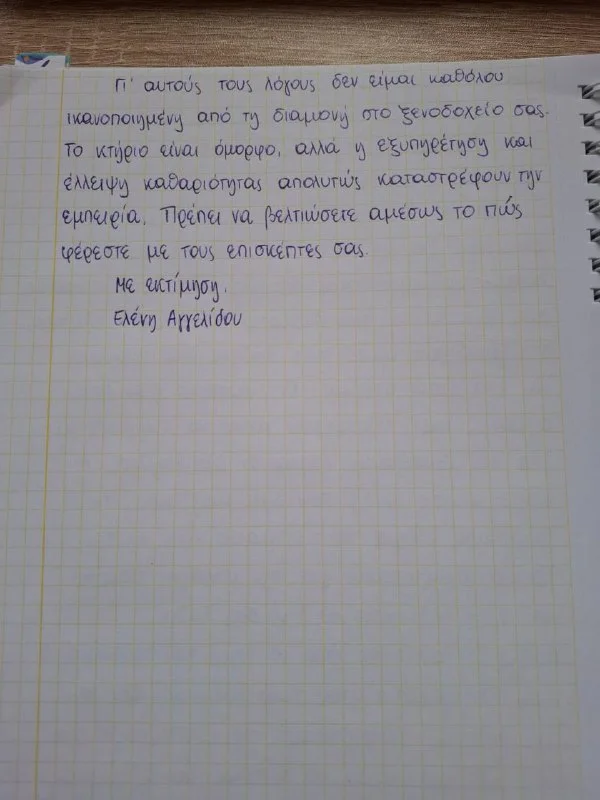 Γι' αυτούς τους λόγους δεν είμαι καθόλου
ικανοποιημένη από τη διαμονή στο ξενοδοχείο σας.
Το κτήριο είναι όμορφο, αλλά η εξυπηρέτηση και
έλλειψη καθαριότητας απολυτώς καταστρέφουν την
εμπειρία. Πρέπει να βελτιώσετε αμέσως το πώς
φέρεστε με τους επισκέπτες σας.
Με εκτίμηση,
Ελένη Αγγελίδου